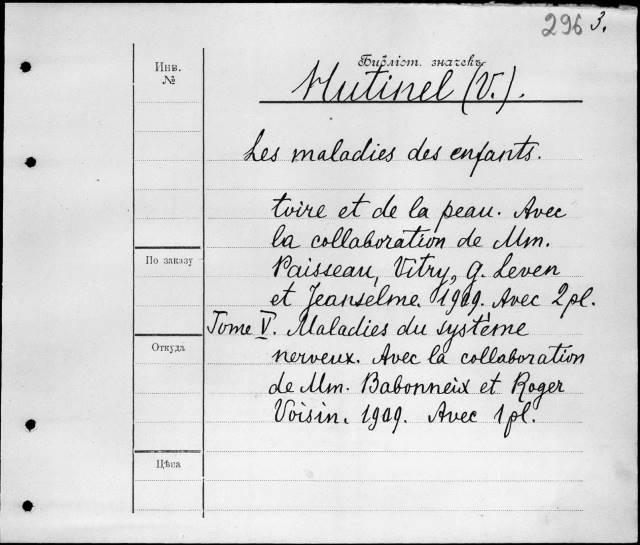 296 3.
Инв.
№
Библіот. значекъ
Hutinel (V.).
Les maladies des enfants.
toire et de la peau. Avec
la collaboration de Mm.
Paisseau, Vitry, G. Leven
et Jeanselme. 1909. Avec 2 pl.
Tome V. Maladies du système
nerveux. Avec la collaboration
de Mm. Babonneix et Roger
Voisin. 1909. Avec 1 pl.
По заказу
Откуда
Цѣна